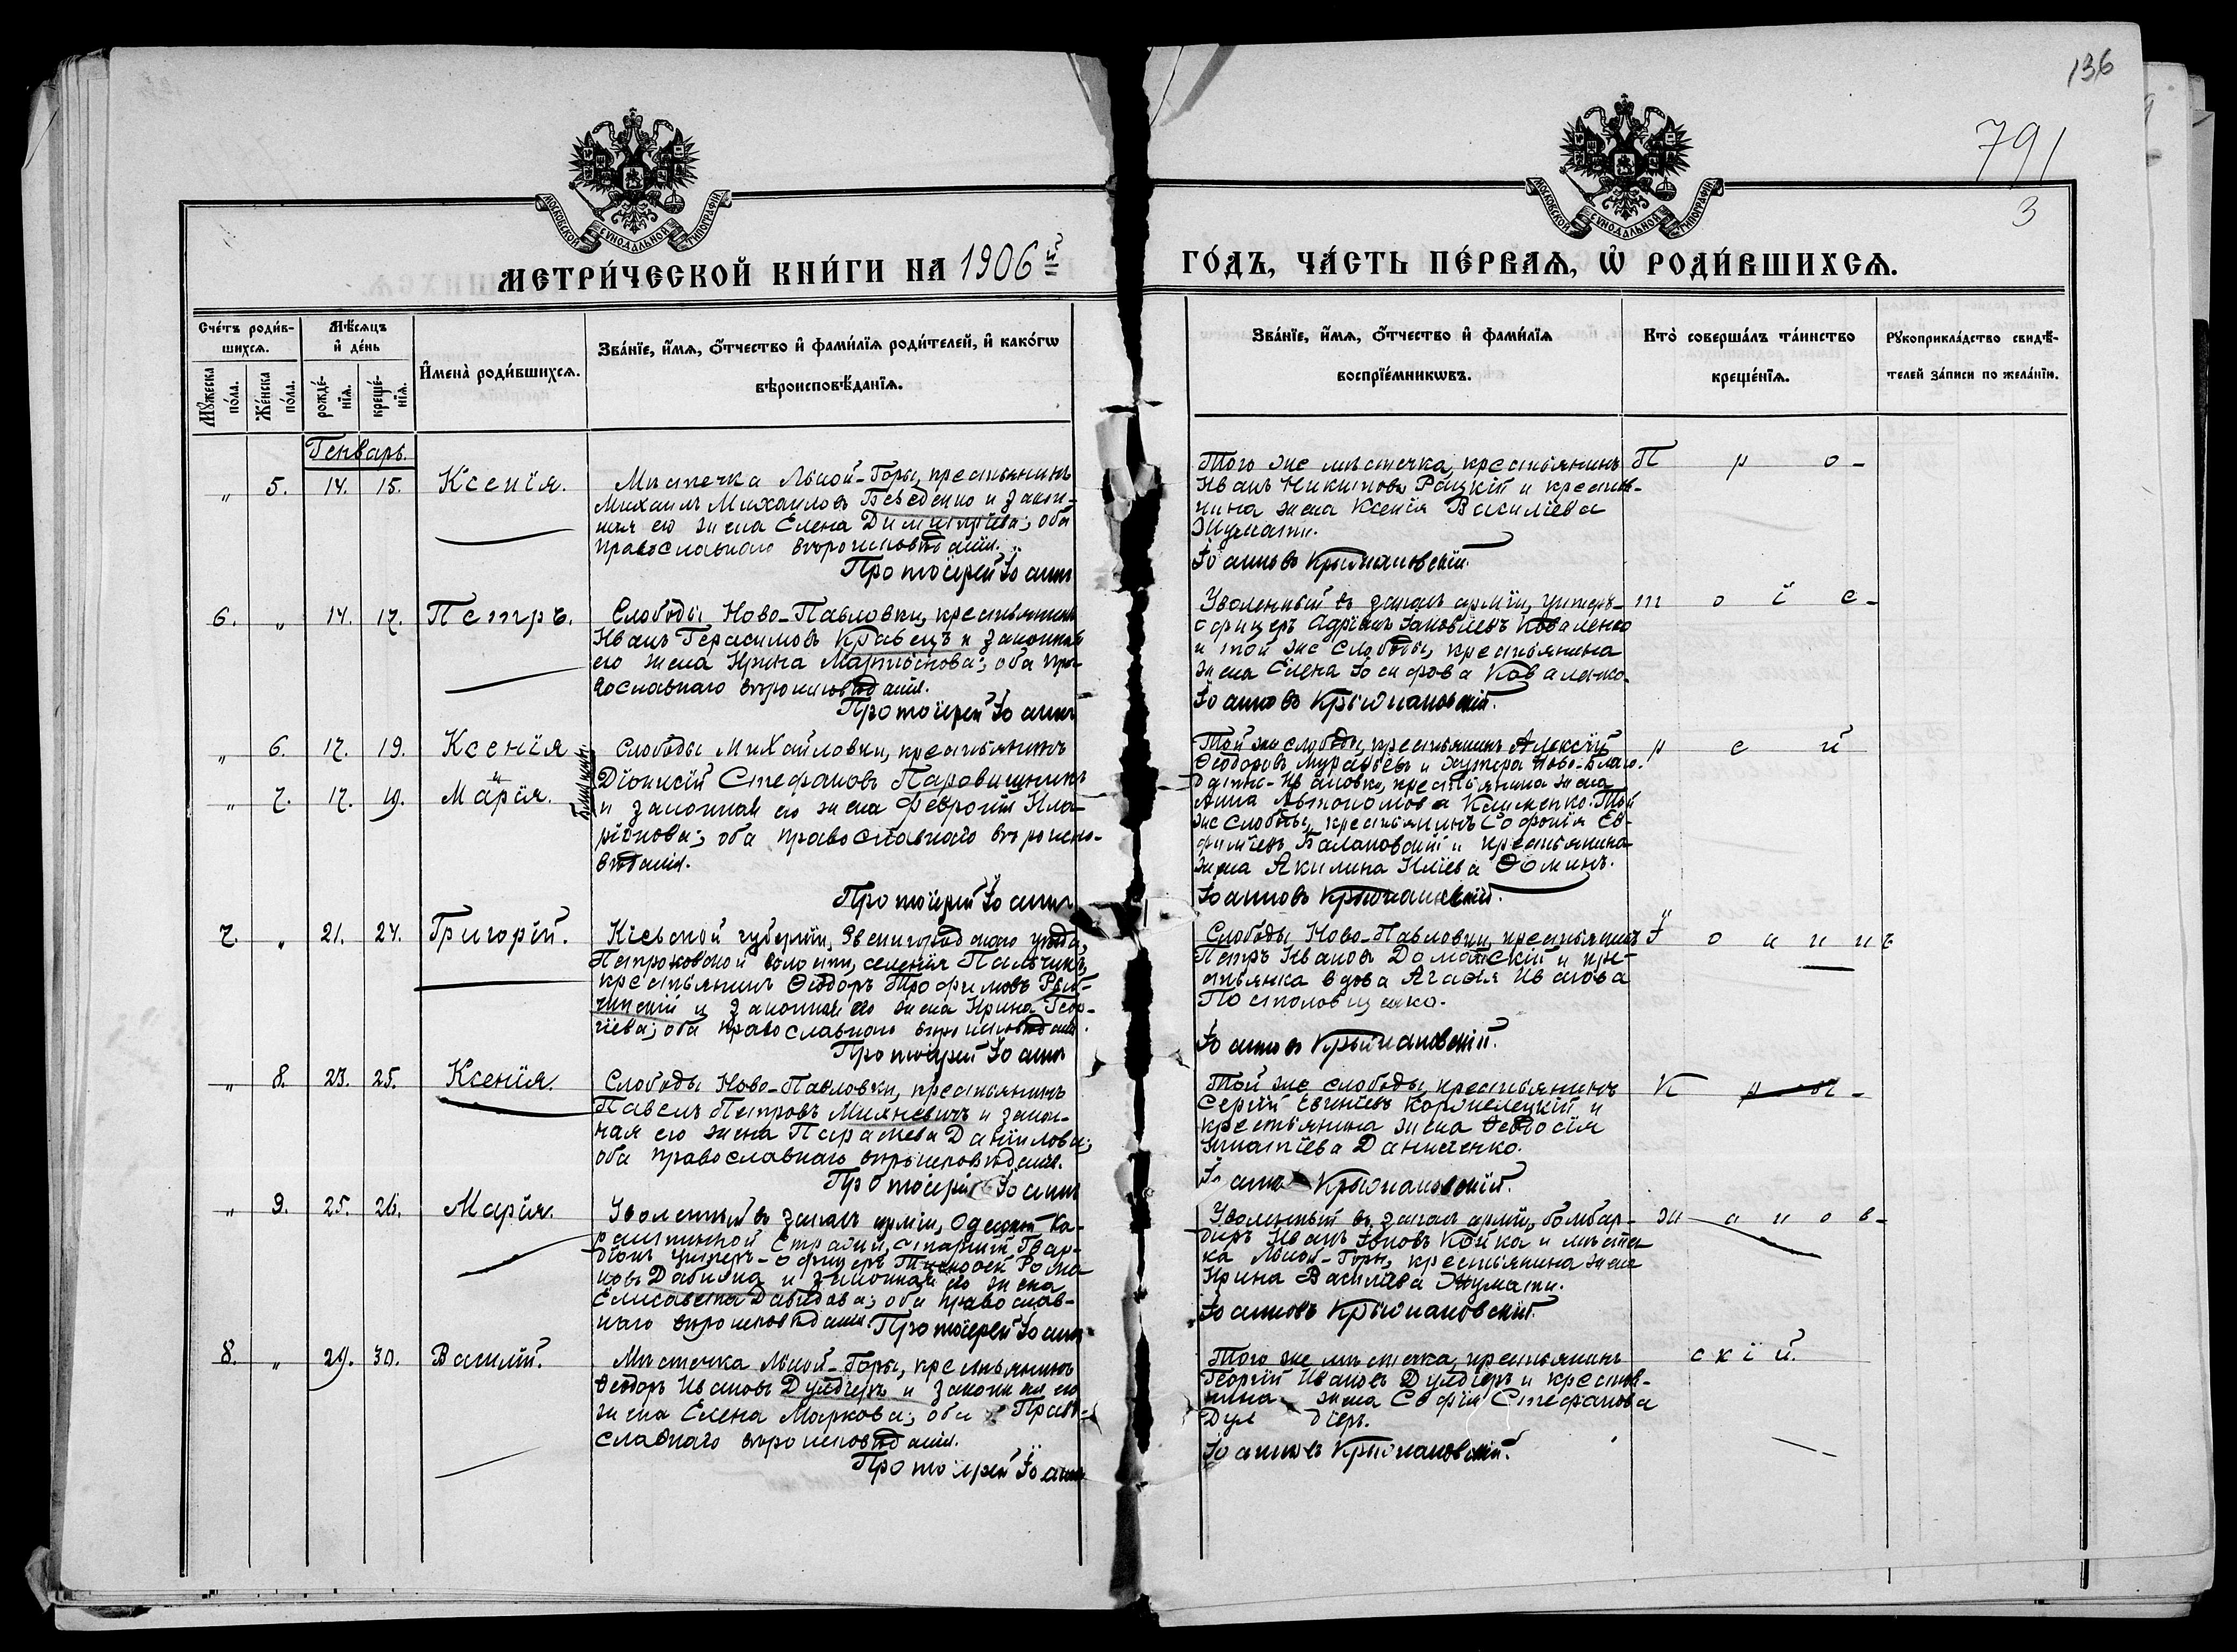 136
791
3
МОСКОВСКОЙ СѴНОДАЛЬНОЙ ТИПОГРАФІИ
МОСКОВСКОЙ СѴНОДАЛЬНОЙ ТИПОГРАФІИ
МЕТРИ́ЧЕСКОЙ КНИ́ГИ НА 1906й
ГО́ДЪ, ЧА́СТЬ ПЕ́РВАѦ, Ѡ҆ РОДИ́ВШИХСѦ.
Сче́тъ роди́в-
шихсѧ.
Мꙋ́жеска по́ла.
Же́нска по́ла.
Мѣ́сѧцъ
и҆ де́нь
рожде́-
нїѧ.
креще́-
нїѧ.
И҆мена̀ роди́вшихсѧ.
Зва́нїе, и҆́мѧ, ѻ҆́тчество и҆ фами́лїѧ роди́телей, и҆ како́гѡ
вѣроисповѣ́данїѧ.
Зва́нїе, и҆́мѧ, ѻ҆́тчество и҆ фами́лїѧ
воспрїе́мникѡвъ.
Кто̀ соверша́лъ та́инство
креще́нїѧ.
Рꙋкоприкла́дство свидѣ́-
телей за́писи по жела́нїю.
Генварь.
„ 5. 14. 15. Ксенія.
Мѣстечка Лысой-Горы, крестьянинъ
Михаилъ Михаиловъ и закон-
ная его жена Елена Димитріева; оба
православнаго вѣроисповѣданія.
Протоіерей Іоаннъ
Того же мѣстечка, крестьянинъ
Иванъ Никитовъ Рацкій и крестья-
нина жена Ксенія Василіева
Іоанновъ Крыжановскій.
Про-
6. „ 14. 17. Петръ.
Слободы Ново-Павловки, крестьянинъ
Иванъ Герасимовъ Кравецъ и законная
его жена Ирина Мартыновa; оба пра-
вославнаго вѣроисповѣданія.
Протоіерей Іоаннъ
Уволенный въ запасъ арміи, унтеръ-
офицеръ Адріанъ Іаковлевъ Коваленко
и той же слободы, крестьянина
жена Елена Іосифова Коваленко.
Іоанновъ Крыжановскій.
тоіе-
„ 6. 17. 19. Ксенія
и
„ 7. 17. 19. Марія.
близнецы.
Слободы Михайловки, крестьянинъ
Діонисій Стефановъ
и законная его жена Февронія Ила-
ріонова; оба православнаго вѣроиспо-
вѣданія.
Протоіерей Іоаннъ
Той же слободы, крестьянинъ Алексѣй
Ѳеодоровъ Муравьевъ и хутора Ново-Благо-
датно-Ивановки, крестьянина жена
Анна Клименко. Той
же слободы, крестьянинъ Софонія Ев-
фиміевъ Балановскій и крестьянина
жена Акилина Иліева Ѳоминъ.
Іоанновъ Крыжановскій.
рей
7. „ 21. 24. Григорій.
Кіевской губерніи, Звенигородского уѣзда,
волости, селенія
крестьянинъ Ѳеодоръ Трофимовъ
и законная его жена Ирина Геор-
гіева; оба православнаго вѣроисповѣданія.
Протоіерей Іоаннъ
Слободы Ново-Павловки, крестьянинъ
Петръ Ивановъ Доманскій и кре-
стьянка вдова Агафія Иванова
Іоанновъ Крыжановскій.
Іоаннъ
„ 8. 23. 25. Ксенія.
Слободы Ново-Павловки, крестьянинъ
Павелъ Петровъ и закон-
ная его жена Параскева Даніилова;
оба православнаго вѣроисповѣданія.
Протоіерей Іоаннъ
Той же слободы, крестьянинъ
Сергій
крестьянина жена Ѳеодосія
Игнатіева Данисченко.
Іоаннъ Крыжановскій.
Кры-
„ 9. 25. 26. Марія.
Уволенный въ запасъ арміи,
старшій
унтеръ-офицеръ Тимоѳей Рома-
новъ и законная его жена
Елисавета Давидова; оба православ-
наго вѣроисповѣданія. Протоіерей Іоаннъ
Уволенный въ запасъ арміи, бомбар-
диръ Иванъ Койка и мѣстеч-
ка Лысой-Горы, крестьянина жена
Ирина Василіева
Іоанновъ Крыжановскій.
жанов-
8. „ 29. 30. Василій.
Мѣстечка Лысой-Горы, крестьянинъ
Ѳеодоръ Ивановъ Дулдіеръ и законная его
жена Елена Маркова; оба Право-
славнаго вѣроисповѣданія.
Протоіерей Іоаннъ
Того же мѣстечка, крестьянинъ
Георгій Ивановъ Дулдіеръ и крестья-
нина жена Софія Стефанова
Дулдіеръ.
Іоанновъ Крыжановскій.
скій.